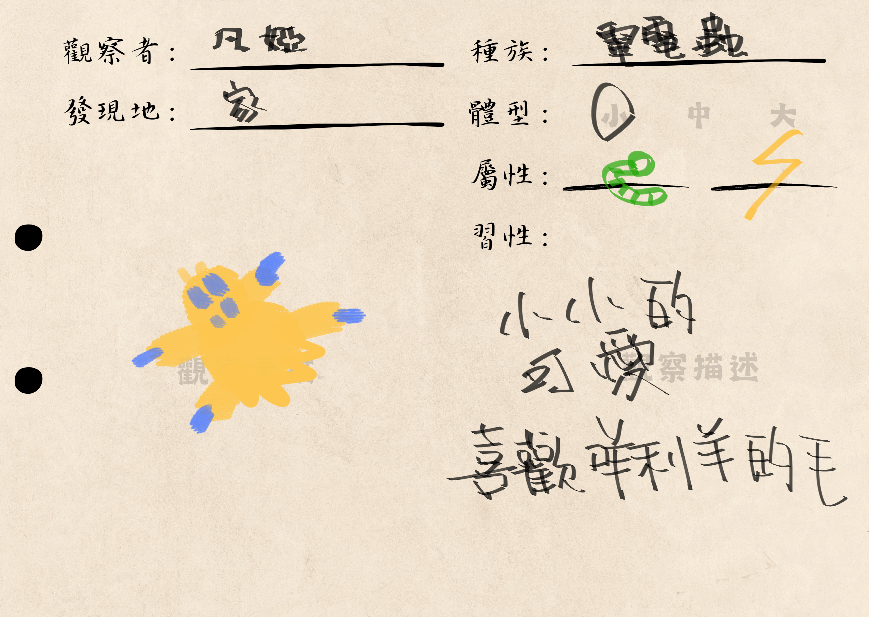 觀察者：凡婭
種族：電電蟲
發現地：家
體型：小 中 大
屬性：
習性：
小小的
可愛
觀察描述
喜歡咩利羊的毛